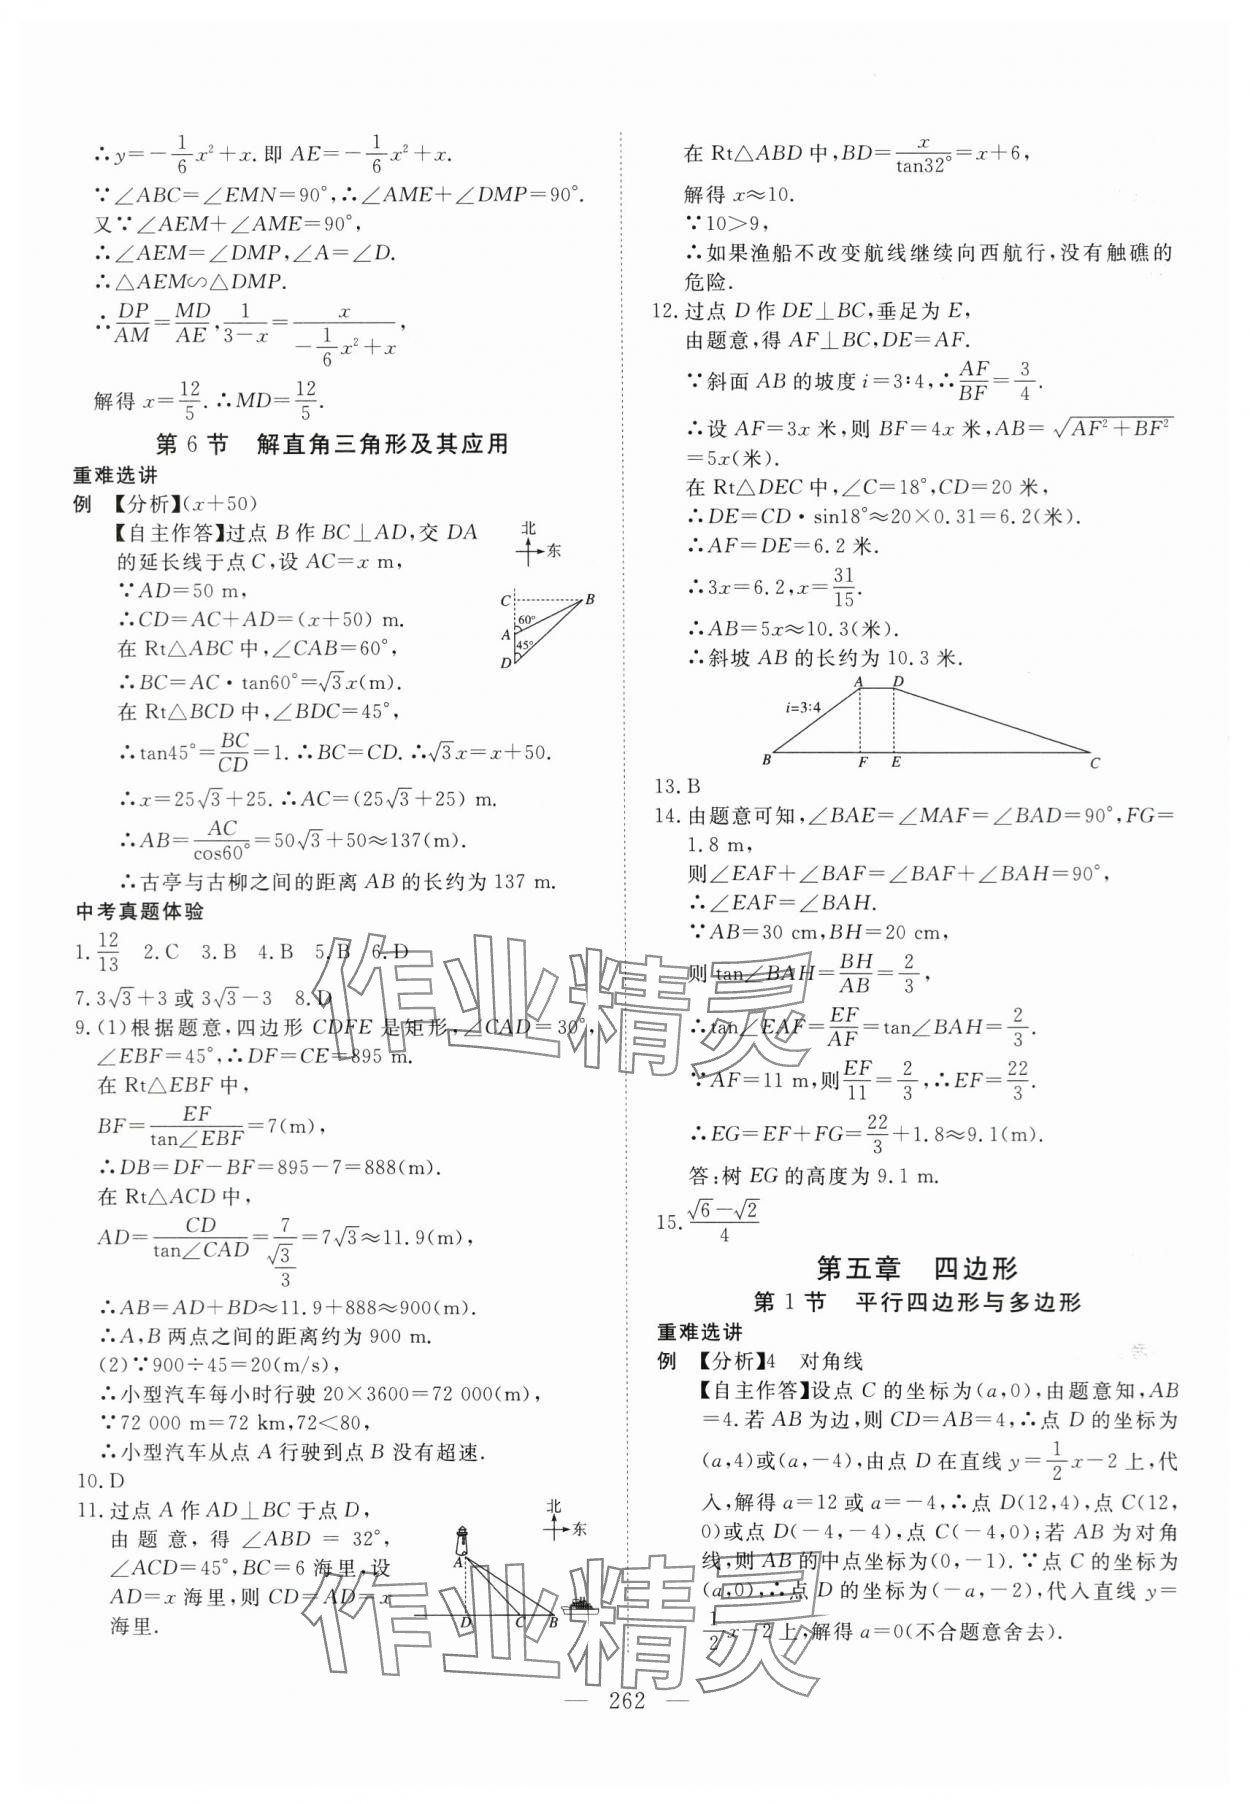 ∴y=-1/6x²+x.即 AE=-1/6x²+x.
∵∠ABC=∠EMN=90°,∴∠AME+∠DMP=90°.
又∵∠AEM+∠AME=90°,
∴∠AEM=∠DMP,∠A=∠D.
∴△AEM∽△DMP.
∴DP/AM=MD/AE,1/(3-x)=x/(-1/6x²+x),
解得 x=12/5.∴MD=12/5.
第 6 节 解直角三角形及其应用
重难选讲
例 【分析】(x+50)
【自主作答】过点 B 作 BC⊥AD,交 DA
的延长线于点 C,设 AC=x m,
∵AD=50 m,
∴CD=AC+AD=(x+50) m.
在 Rt△ABC 中,∠CAB=60°,
∴BC=AC·tan60°=√3x(m).
在 Rt△BCD 中,∠BDC=45°,
∴tan45°=BC/CD=1.∴BC=CD.∴√3x=x+50.
∴x=25√3+25.∴AC=(25√3+25) m.
∴AB=AC/cos60°=50√3+50≈137(m).
∴古亭与古柳之间的距离 AB 的长约为 137 m.
北
东
C B
60°
A
45°
D
中考真题体验
1.12/13 2.C 3.B 4.B 5.B 6.D
7.3√3+3 或 3√3-3 8.D
9.(1)根据题意,四边形 CDFE 是矩形,∠CAD=30°,
∠EBF=45°,∴DF=CE=895 m.
在 Rt△EBF 中,
BF=EF/tan∠EBF=7(m),
∴DB=DF-BF=895-7=888(m).
在 Rt△ACD 中,
AD=CD/tan∠CAD=7/(√3/3)=7√3≈11.9(m),
∴AB=AD+BD≈11.9+888≈900(m).
∴A,B 两点之间的距离约为 900 m.
(2)∵900÷45=20(m/s),
∴小型汽车每小时行驶 20×3600=72 000(m),
∵72 000 m=72 km,72<80,
∴小型汽车从点 A 行驶到点 B 没有超速.
10.D
11.过点 A 作 AD⊥BC 于点 D,
由题意,得 ∠ABD = 32°,
∠ACD=45°,BC=6 海里,设
AD=x 海里,则 CD=AD=x
海里.
北
东
A
D C B
在 Rt△ABD 中,BD=x/tan32°=x+6,
解得 x≈10.
∵10>9,
∴如果渔船不改变航线继续向西航行,没有触礁的
危险.
12.过点 D 作 DE⊥BC,垂足为 E,
由题意,得 AF⊥BC,DE=AF.
∵斜面 AB 的坡度 i=3∶4,∴AF/BF=3/4.
∴设 AF=3x 米,则 BF=4x 米,AB=√(AF²+BF²)
=5x(米).
在 Rt△DEC 中,∠C=18°,CD=20 米,
∴DE=CD·sin18°≈20×0.31=6.2(米).
∴AF=DE=6.2 米.
∴3x=6.2,x=31/15.
∴AB=5x≈10.3(米).
∴斜坡 AB 的长约为 10.3 米.
A D
i=3∶4
B F E C
13.B
14.由题意可知,∠BAE=∠MAF=∠BAD=90°,FG=
1.8 m,
则∠EAF+∠BAF=∠BAF+∠BAH=90°,
∴∠EAF=∠BAH.
∵AB=30 cm,BH=20 cm,
则 tan∠BAH=BH/AB=2/3,
∴tan∠EAF=EF/AF=tan∠BAH=2/3.
∵AF=11 m,则EF/11=2/3,∴EF=22/3.
∴EG=EF+FG=22/3+1.8≈9.1(m).
答:树 EG 的高度为 9.1 m.
15.(√6-√2)/4
第五章 四边形
第 1 节 平行四边形与多边形
重难选讲
例 【分析】4 对角线
【自主作答】设点 C 的坐标为(a,0),由题意知,AB
=4.若 AB 为边,则 CD=AB=4,∴点 D 的坐标为
(a,4)或(a,-4),由点 D 在直线 y=1/2x-2 上,代
入,解得 a=12 或 a=-4,∴点 D(12,4),点 C(12,
0)或点 D(-4,-4),点 C(-4,0);若 AB 为对角
线,则 AB 的中点坐标为(0,-1).∵点 C 的坐标为
(a,0),∴点 D 的坐标为(-a,-2),代入直线 y=
1/2x-2 上,解得 a=0(不合题意舍去).
作业精灵
作业精灵
— 262 —